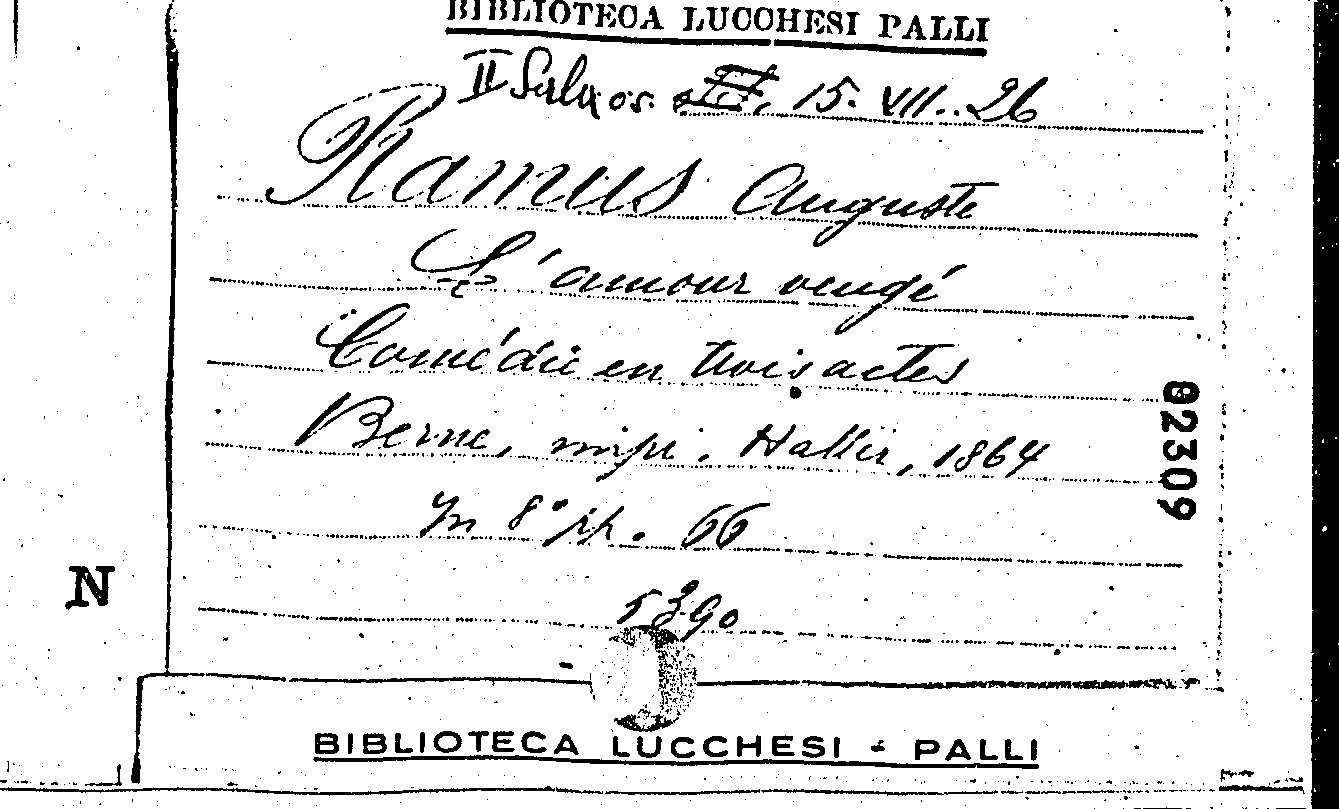 BIBLIOTECA LUCCHESI PALLI
II Sala 15. VII. 26
Ramus Auguste
L'amour vengé
Comédie en trois actes
Berne, impr. Haller, 1864
In 8° pp. 66
5390
82309
N
BIBLIOTECA LUCCHESI - PALLI